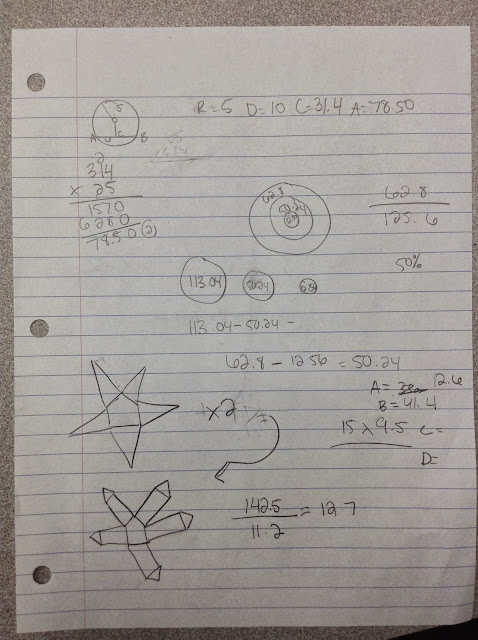 R=5 D=10 C=31.4 A=78.50
5
A C B
2
314
x 25
1570
6280
78.50 (2)
62.8
50.24
62.8
125.6
50%
113.04 50.24
113.04 - 50.24 -
62.8 - 1256 = 50.24
A= 12.6
B=41.4
15 x 9.5 C=
D=
x2
142.5
11.2
= 12.7